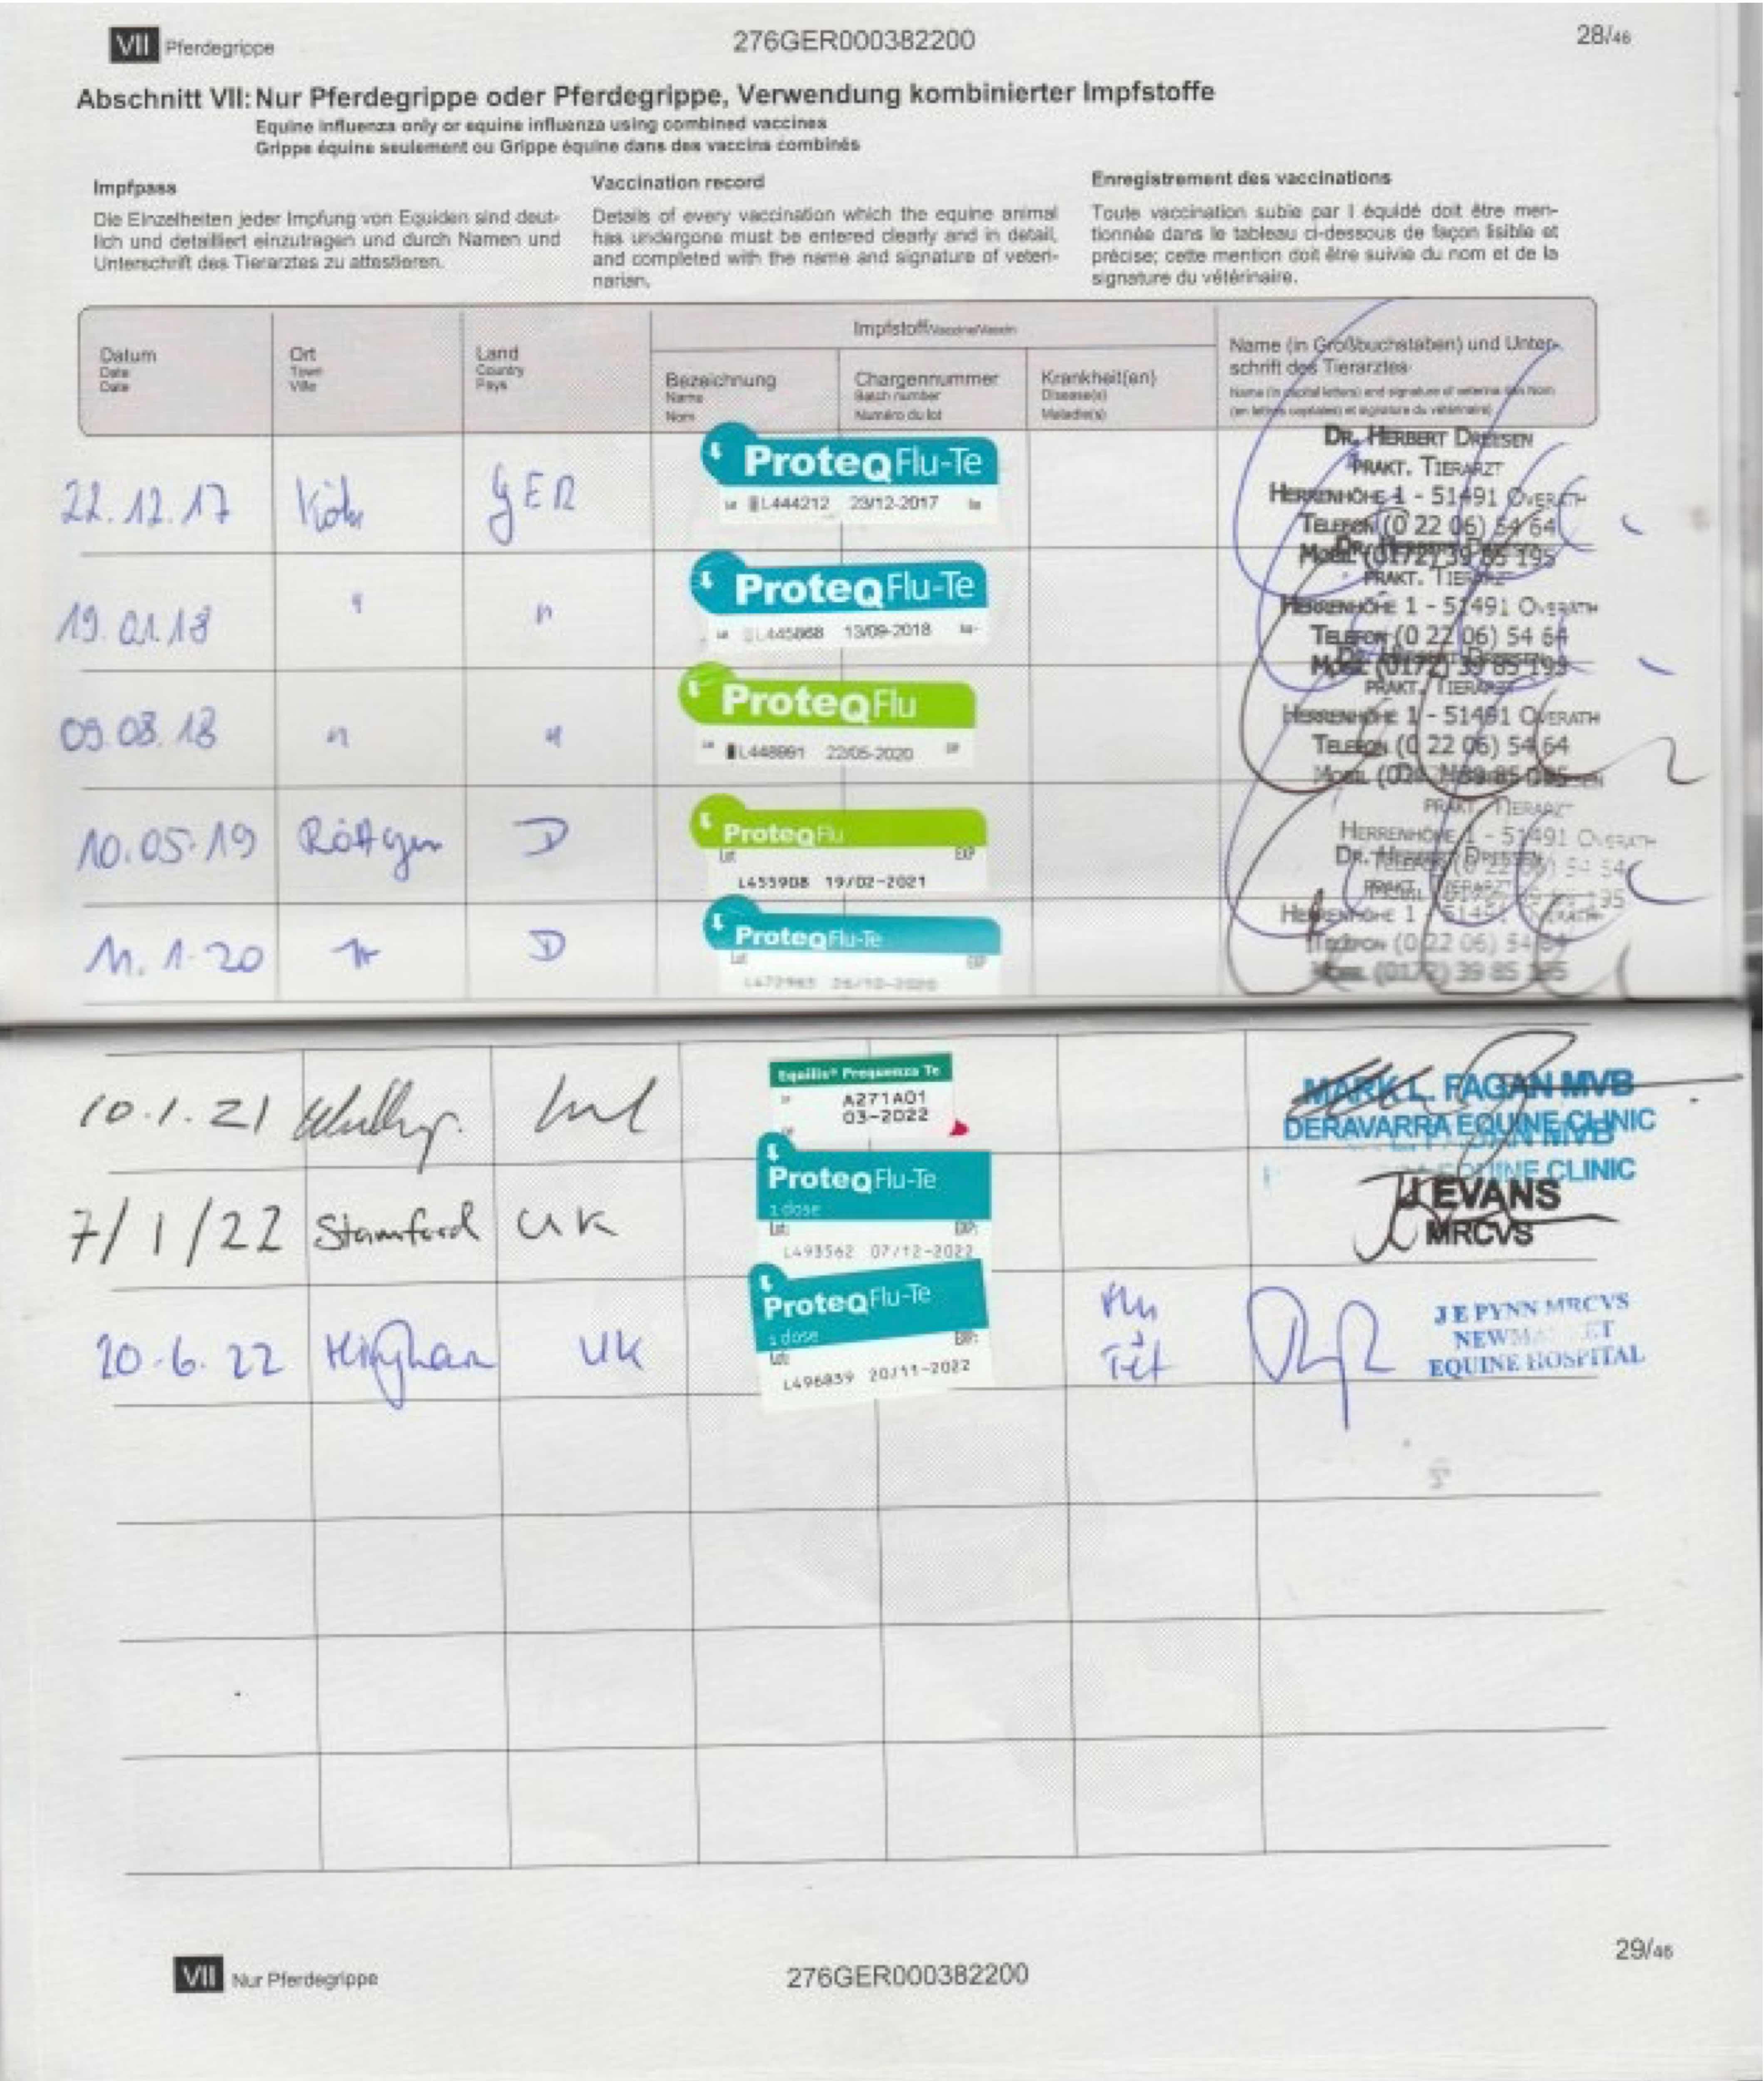 VII Pferdegrippe
276GER000382200
28/46
Abschnitt VII: Nur Pferdegrippe oder Pferdegrippe, Verwendung kombinierter Impfstoffe
Equine influenza only or equine influenza using combined vaccines
Grippe équine seulement ou Grippe équine dans des vaccins combinés
Impfpass
Die Einzelheiten jeder Impfung von Equiden sind deut-
lich und detailliert einzutragen und durch Namen und
Unterschrift des Tierarztes zu attestieren.
Vaccination record
Details of every vaccination which the equine animal
has undergone must be entered clearly and in detail,
and completed with the name and signature of veteri-
narian.
Enregistrement des vaccinations
Toute vaccination subie par l équidé doit être men-
tionnée dans le tableau ci-dessous de façon lisible et
précise; cette mention doit être suivie du nom et de la
signature du vétérinaire.
Datum
Date
Date
Ort
Town
Ville
Land
Country
Pays
Impfstoff/Vaccine/Vaccin
Bezeichnung
Name
Nom
Chargennummer
Batch number
Numéro du lot
Krankheit(en)
Disease(s)
Maladie(s)
Name (in Großbuchstaben) und Unter-
schrift des Tierarztes
Name (in capital letters) and signature of
(en lettres capitales) et signature du vétérinaire)
22.12.17 Köln GER ProteqFlu-Te
L444212 23/12-2017
DR. HERBERT DREESEN
PRAKT. TIERARZT
HERRENHÖHE 1 - 51491 OVERATH
TELEFON (0 22 06) 54 64
MOBIL (0172) 39 85 195
19.01.18 " " ProteqFlu-Te
L445868 13/09-2018
PRAKT. TIERARZT
HERRENHÖHE 1 - 51491 OVERATH
TELEFON (0 22 06) 54 64
MOBIL (0172) 39 85 195
09.08.18 " " ProteqFlu
L448991 22/05-2020
PRAKT. TIERARZT
HERRENHÖHE 1 - 51491 OVERATH
TELEFON (0 22 06) 54 64
10.05.19 Röttgen D ProteqFlu
Lot EXP
L455908 19/02-2021
PRAKT. TIERARZT
HERRENHÖHE 1 - 51491 OVERATH
11.1.20 " D ProteqFlu-Te
Lot EXP
L472965 26/10-2020
DR. HERBERT DREESEN
HERRENHÖHE 1 - 51491 OVERATH
TELEFON (0 22 06) 54 64
MOBIL (0172) 39 85 195
10.1.21 Equilis® Prequenza Te
A271A01
03-2022
MARK L. FAGAN MVB
DERAVARRA EQUINE CLINIC
EQUINE CLINIC
7/1/22 Stamford UK ProteqFlu-Te
1 dose
Lot: EXP:
L493562 07/12-2022
J EVANS
MRCVS
20.6.22 Hingham UK ProteqFlu-Te
1 dose
Lot: EXP:
L496839 20/11-2022
Flu
Tet
J E PYNN MRCVS
NEWMARKET
EQUINE HOSPITAL
VII Nur Pferdegrippe
276GER000382200
29/46